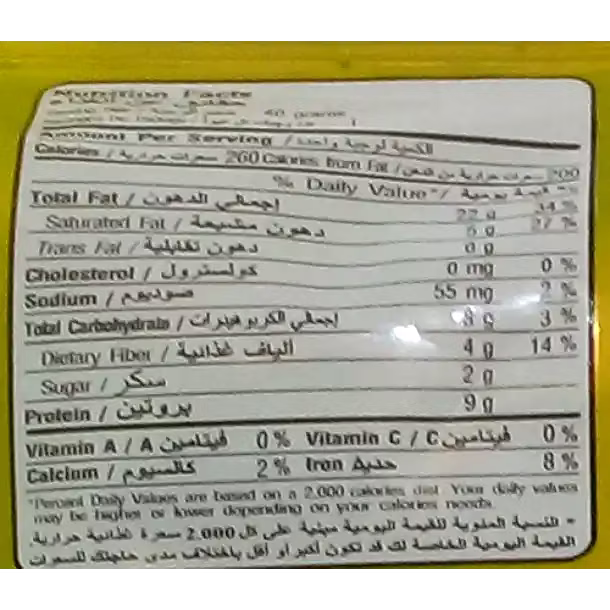 Nutrition Facts
40 grams
Amount Per Serving / الكمية لوجبة واحدة
Calories / سعرات حرارية 260 Calories from Fat / سعرات حرارية من الدهن 200
% Daily Value* / القيمة يومية %*
Total Fat / إجمالي الدهون 22 g 34 %
Saturated Fat / دهون مشبعة g 27 %
Trans Fat / دهون تقابلية 0 g
Cholesterol / كولسترول 0 mg 0 %
Sodium / صوديوم 55 mg 2 %
Total Carbohydrate / إجمالي الكربوهيدرات 8 g 3 %
Dietary Fiber / ألياف غذائية 4 g 14 %
Sugar / سكر 2 g
Protein / بروتين 9 g
Vitamin A / A فيتامين 0 % Vitamin C / C فيتامين 0 %
Calcium / كالسيوم 2 % Iron حديد 8 %
*Percent Daily Values are based on a 2,000 calories diet. Your daily values
may be higher or lower depending on your calories needs.
* النسبة المئوية للقيمة اليومية مبنية على كل 2.000 سعرة غذائية حرارية.
القيمة اليومية الخاصة لك قد تكون أكبر أو أقل باختلاف مدى حاجتك للسعرات